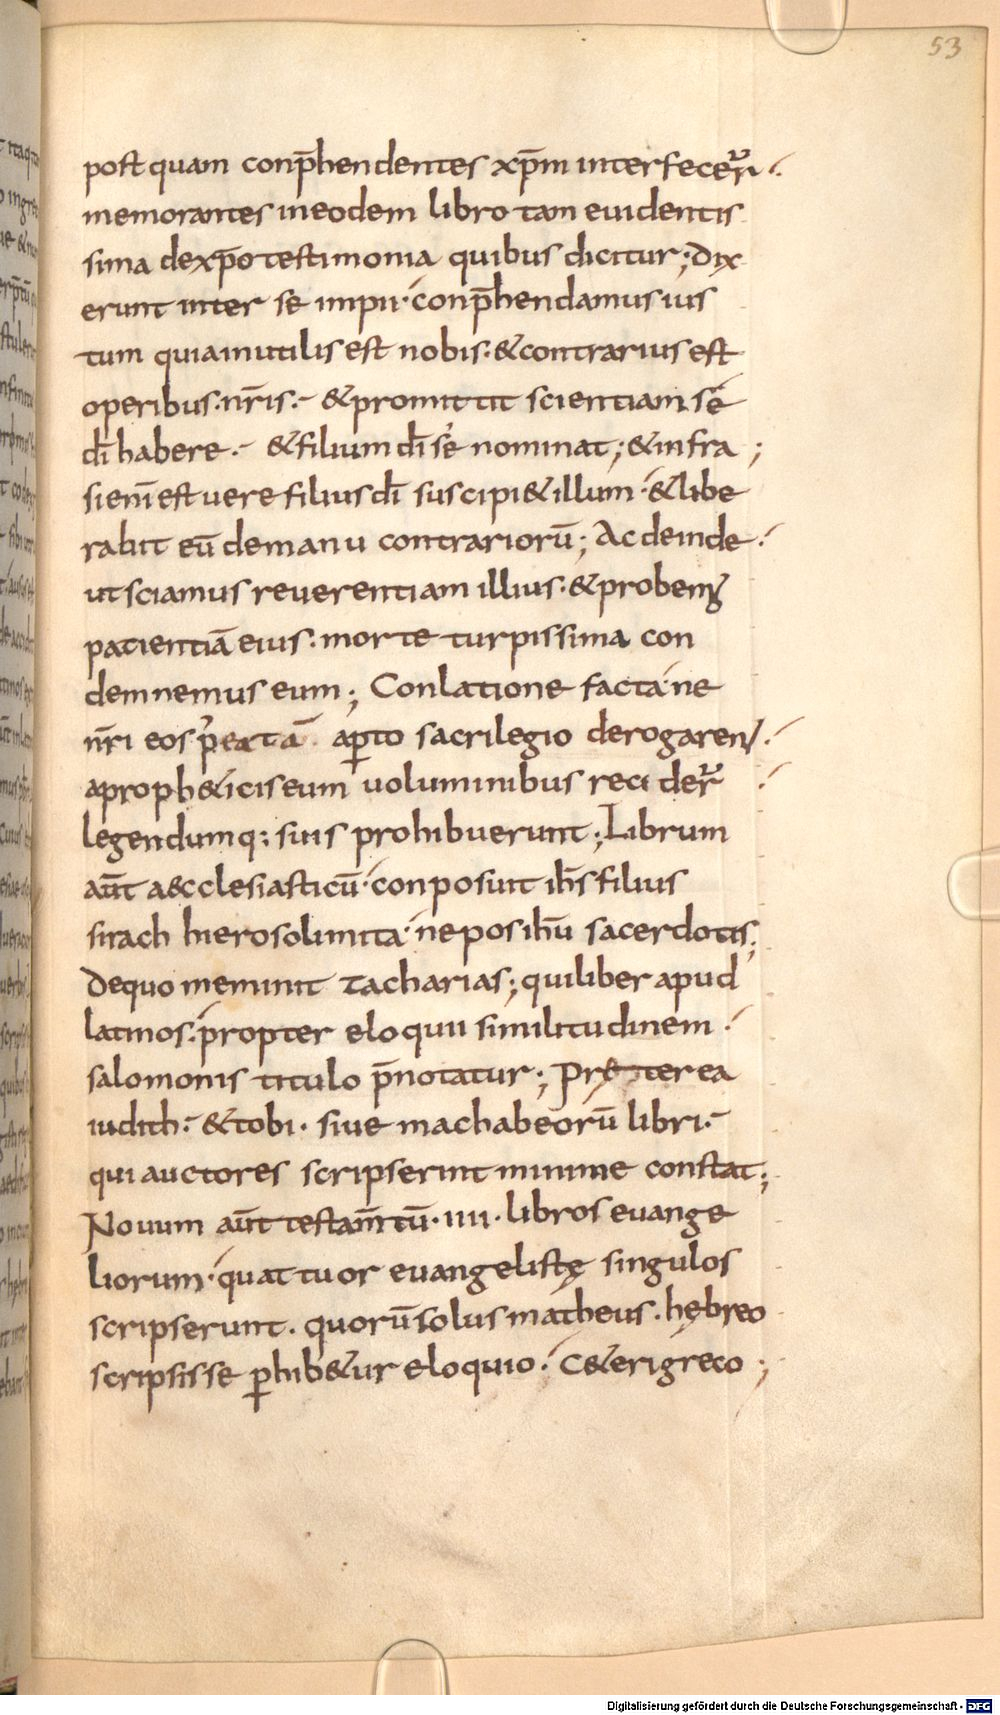 53
post quam conp̄hendentes xp̄m interfecer̄
memorantes ineodem libro tam euidentis
sima dexp̄o testimonia quibus dicitur; Dix
erunt inter se impii· conp̄hendamus ius
tum quia inutilis est nobis· & contrarius est
operibus· nr̄is· & promittit scientiam se
dī habere· & filium dī se nominat; & infra;
sienī est uere filius dī suscipi& illum· & libe
rabit eū demanu contrariorū; Ac deinde·
ut sciamus reuerentiam illius· & probem;
patientiā eius· morte turpissima con
demnemus eum; Conlatione facta· ne
nr̄i eos aꝑto sacrilegio derogaren·
aproph&icis eum uoluminibus reci der̄
legendumq; suis prohibuerunt; Librum
aūt aecclesiasticū· conposuit ih̄s filius
sirach hierosolimita· nepos ih̄u sacerdotis;
Dequo meminit zacharias; qui liber apud
latinos· propter eloquii similitudinem·
salomonis titulo p̄notatur; Pręterea
iudith· & tobi· siue machabeorū libri·
qui auctores scripserint minime constat;
Nouum aūt testam̄tū· IIII· libros euange
liorum· quattuor euangelistę singulos
scripserunt· quorū solus matheus· hębreo
scripsisse ꝑhib&ur eloquio· C&eri greco;
Digitalisierung gefördert durch die Deutsche Forschungsgemeinschaft - DFG